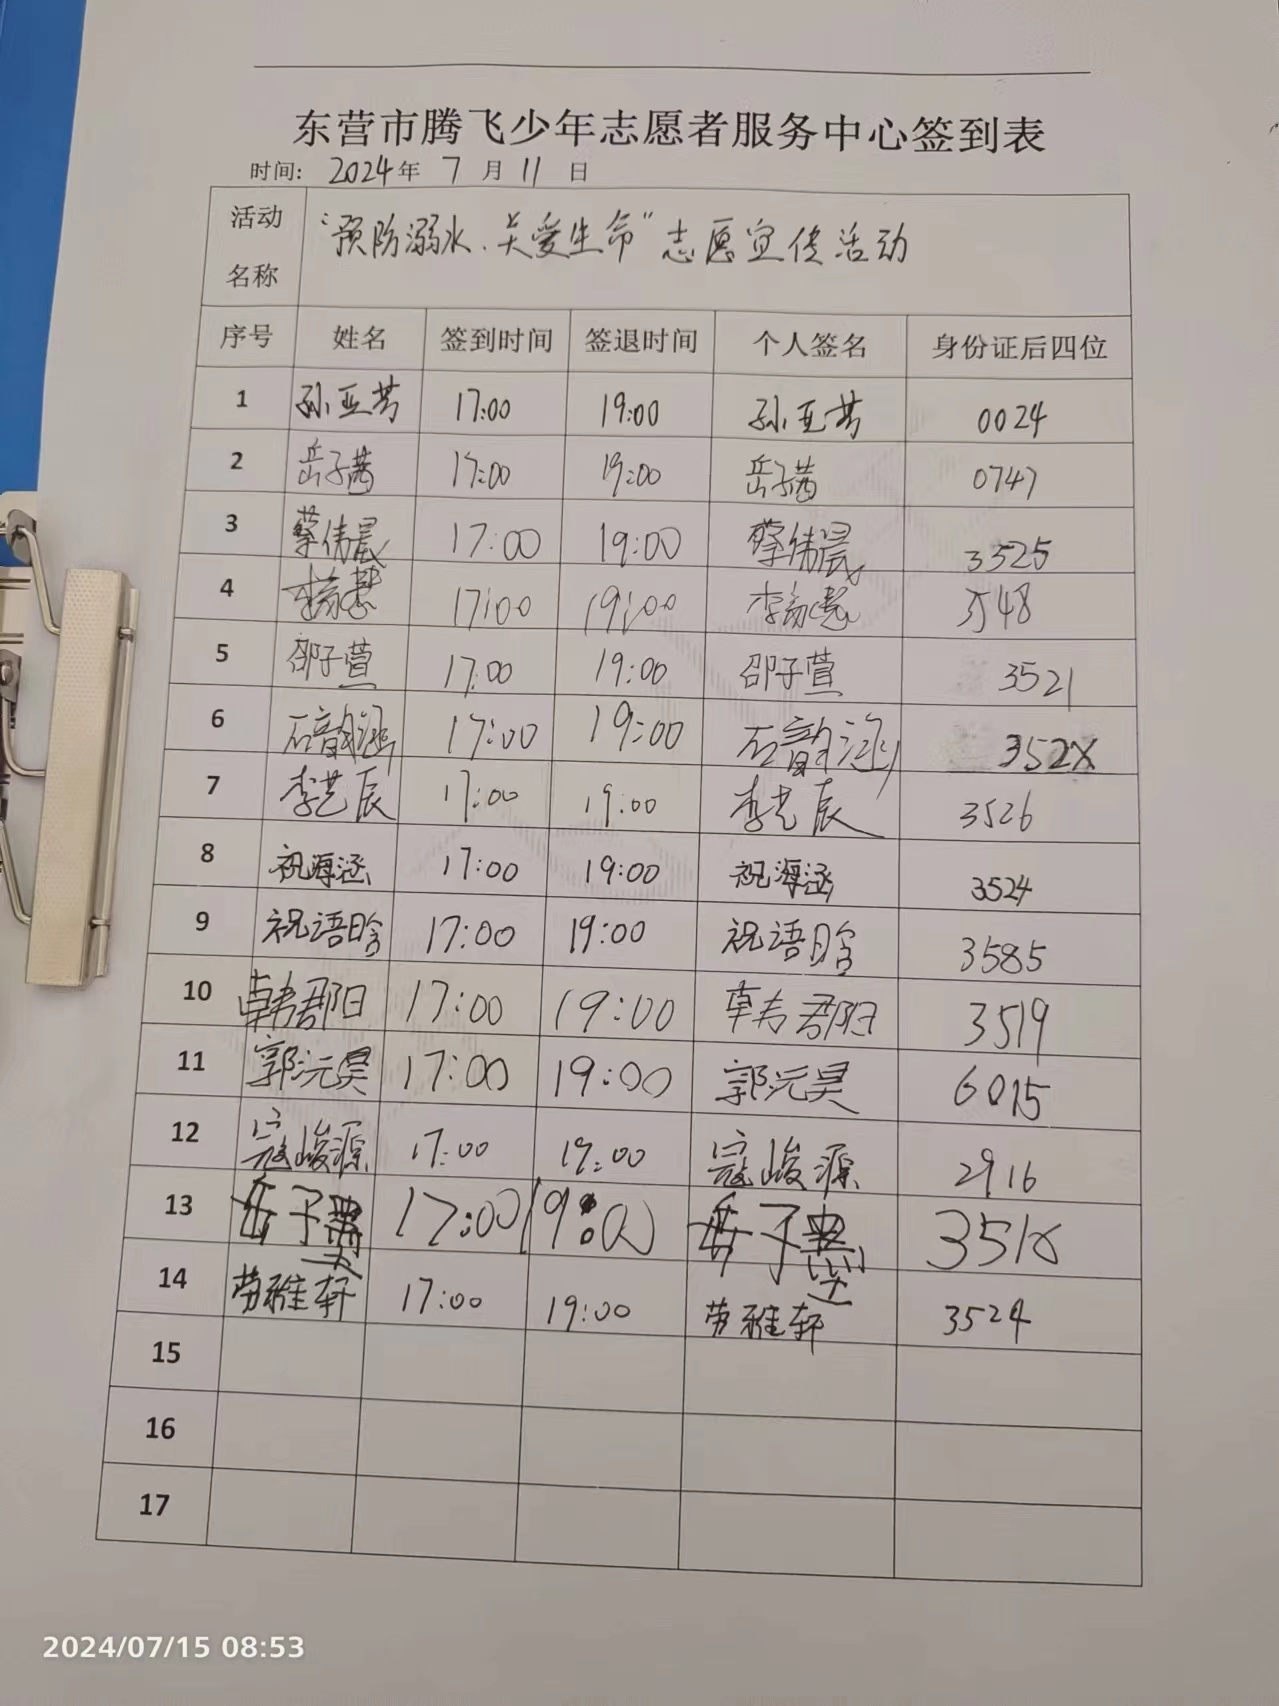 东营市腾飞少年志愿者服务中心签到表
时间: 2024年 7 月 11 日
活动名称 "预防溺水、关爱生命"志愿宣传活动
序号 姓名 签到时间 签退时间 个人签名 身份证后四位
1 孙亚芳 17:00 19:00 孙亚芳 0024
2 岳子茜 17:00 19:00 岳子茜 0747
3 蔡伟晨 17:00 19:00 蔡伟晨 3525
4 17:00 19:00 3548
5 邵子萱 17:00 19:00 邵子萱 3521
6 石韵涵 17:00 19:00 石韵涵 352X
7 李艺辰 17:00 19:00 李艺辰 3526
8 祝海涵 17:00 19:00 祝海涵 3524
9 祝语晗 17:00 19:00 祝语晗 3585
10 韩君阳 17:00 19:00 韩君阳 3519
11 郭沅昊 17:00 19:00 郭沅昊 6015
12 寇峻源 17:00 19:00 寇峻源 2916
13 17:00 19:00 351X
14 劳雅轩 17:00 19:00 劳雅轩 3524
15
16
17
2024/07/15 08:53